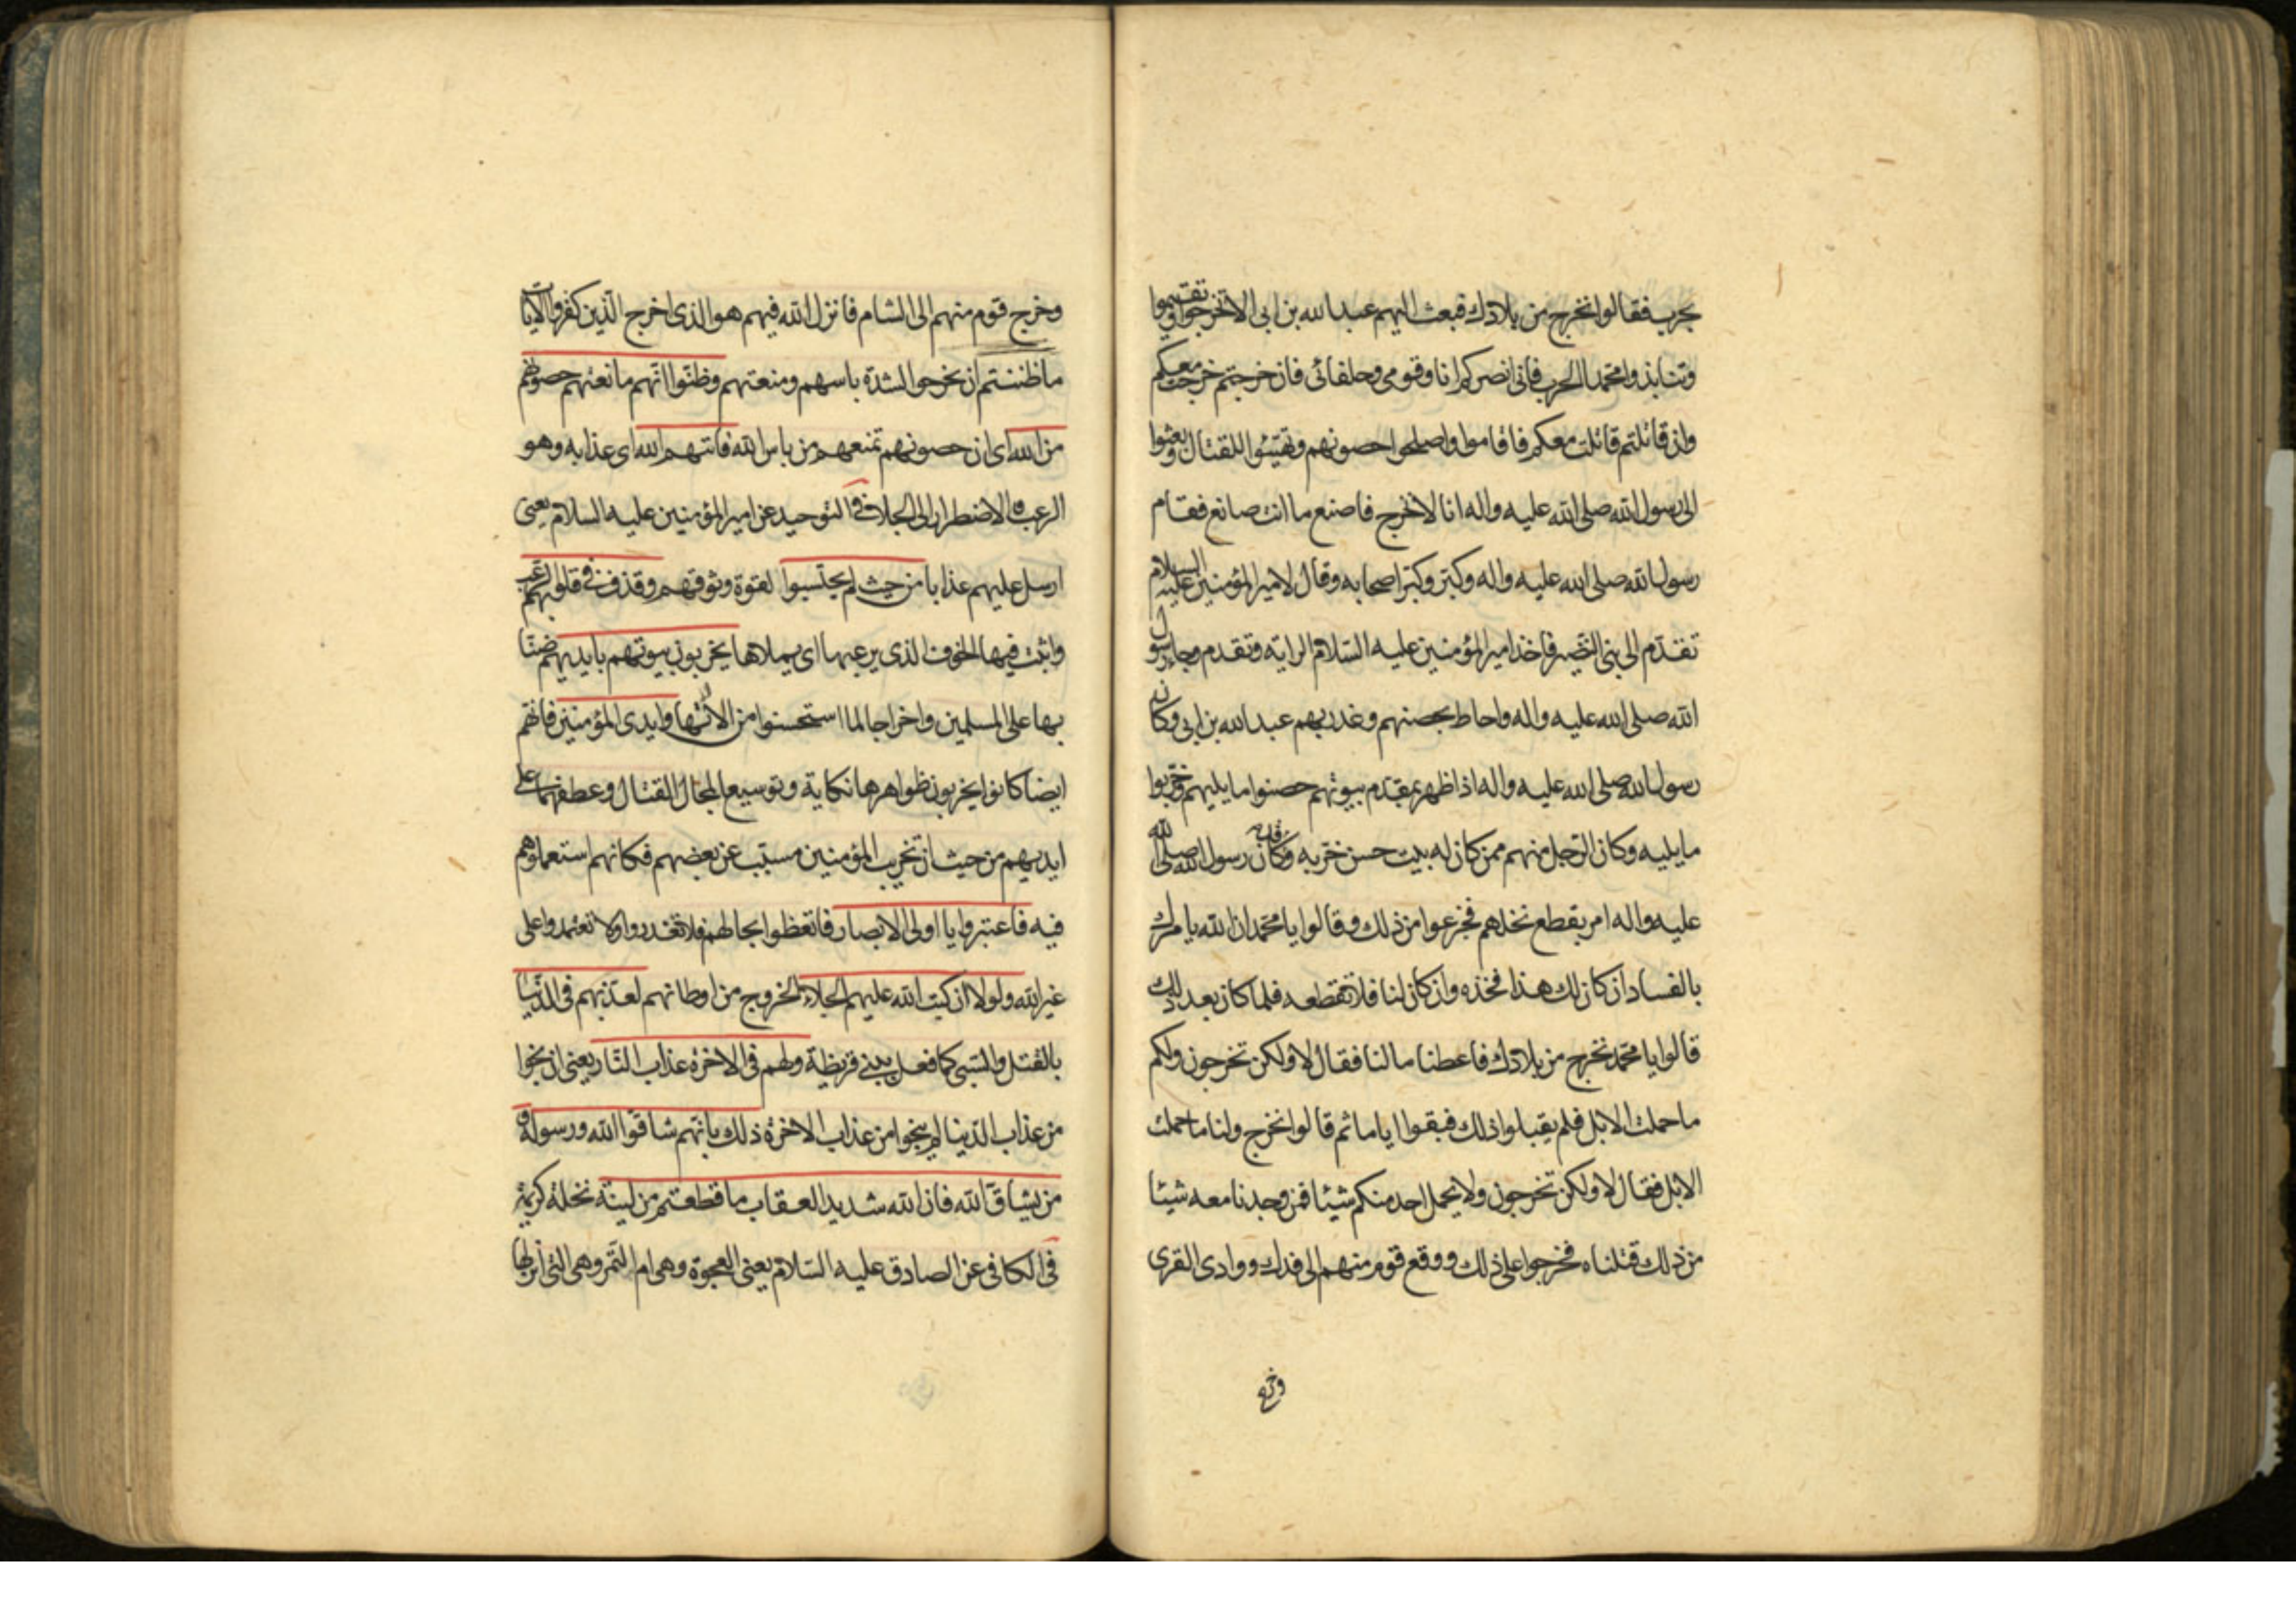 بحرب فقالوا نخرج من بلادك فبعث اليهم عبد الله بن ابى الا تخرجوا وتقيموا
وتنابذوا محمدا الحرب فانى انصركم انا وقومى وحلفائى فان خرجتم خرجت معكم
وان قاتلتم قاتلت معكم فاقاموا واصلحوا حصونهم وتهيّئوا للقتال وبعثوا
الى رسول الله صلى الله عليه واله انا لا نخرج فاصنع ما انت صانع فقام
رسول الله صلى الله عليه واله وكبّر وكبّر اصحابه وقال لامير المؤمنين عليه السلام
تقدّم الى بنى النّضير فاخذ امير المؤمنين عليه السّلام الراية وتقدم وجاء رسول
الله صلى الله عليه واله واحاط بحصنهم وغدر بهم عبد الله بن ابى وكان
رسول الله صلى الله عليه واله اذا ظهر بمقدّم بيوتهم حصنوا ما يليهم وخرّبوا
ما يليه وكان الرّجل منهم ممن كان له بيت حسن خرّبه وقد كان رسول الله صلى الله
عليه واله امر بقطع نخلهم فجزعوا من ذلك وقالوا يا محمّد ان الله يامرك
بالفساد ان كان لك هذا فخذه وان كان لنا فلا تقطعه فلما كان بعد ذلك
قالوا يا محمّد نخرج من بلادك فاعطنا مالنا فقال لا ولكن تخرجون ولكم
ما حملت الابل فلم يقبلوا ذلك فبقوا اياما ثم قالوا نخرج ولنا ما حملت
الابل فقال لا ولكن تخرجون ولا يحمل احد منكم شيئا فمن وجدنا معه شيئا
من ذلك قتلناه فخرجوا على ذلك ووقع قوم منهم الى فدك ووادى القرى
وخرج
وخرج قوم منهم الى الشام فانزل الله فيهم هو الذى اخرج الّذين كفروا الايات
ما ظننتم ان يخرجوا لشدّة باسهم ومنعتهم وظنّوا انّهم مانعتهم حصونهم
من الله اى ان حصونهم تمنعهم من باس الله فاتيهم الله اى عذابه وهو
الرعب والاضطرار الى الجلاء فى التوحيد عن امير المؤمنين عليه السلام يعنى
ارسل عليهم عذابا من حيث لم يحتسبوا لقوة وثوقهم وقذف فى قلوبهم الرّعب
واثبت فيها الخوف الذى يرعبها اى يملاها يخربون بيوتهم بايديهم ضنّا
بها على المسلمين واخراجا لما استحسنوا من الاتها وايدى المؤمنين فانهم
ايضا كانوا يخربون ظواهرها نكاية وتوسيعا لمجال القتال وعطفها على
ايديهم من حيث ان تخريب المؤمنين مسبّب عن بغضهم فكانهم استعملوهم
فيه فاعتبروا يا اولى الابصار فاتعظوا بحالهم فلا تغدروا ولا تعتمدوا على
غير الله ولولا ان كتب الله عليهم الجلاء الخروج من اوطانهم لعذّبهم فى الدّنيا
بالقتل والسّبى كما فعل ببنى قريظة ولهم فى الاخرة عذاب النّار يعنى ان نجوا
من عذاب الدّنيا لم ينجوا من عذاب الاخرة ذلك بانّهم شاقّوا الله ورسوله و
من يشاقّ الله فان الله شديد العقاب ما قطعتم من لينة نخلة كريمة
فى الكافى عن الصادق عليه السّلام يعنى العجوة وهى ام التّمر وهى التى انزلها